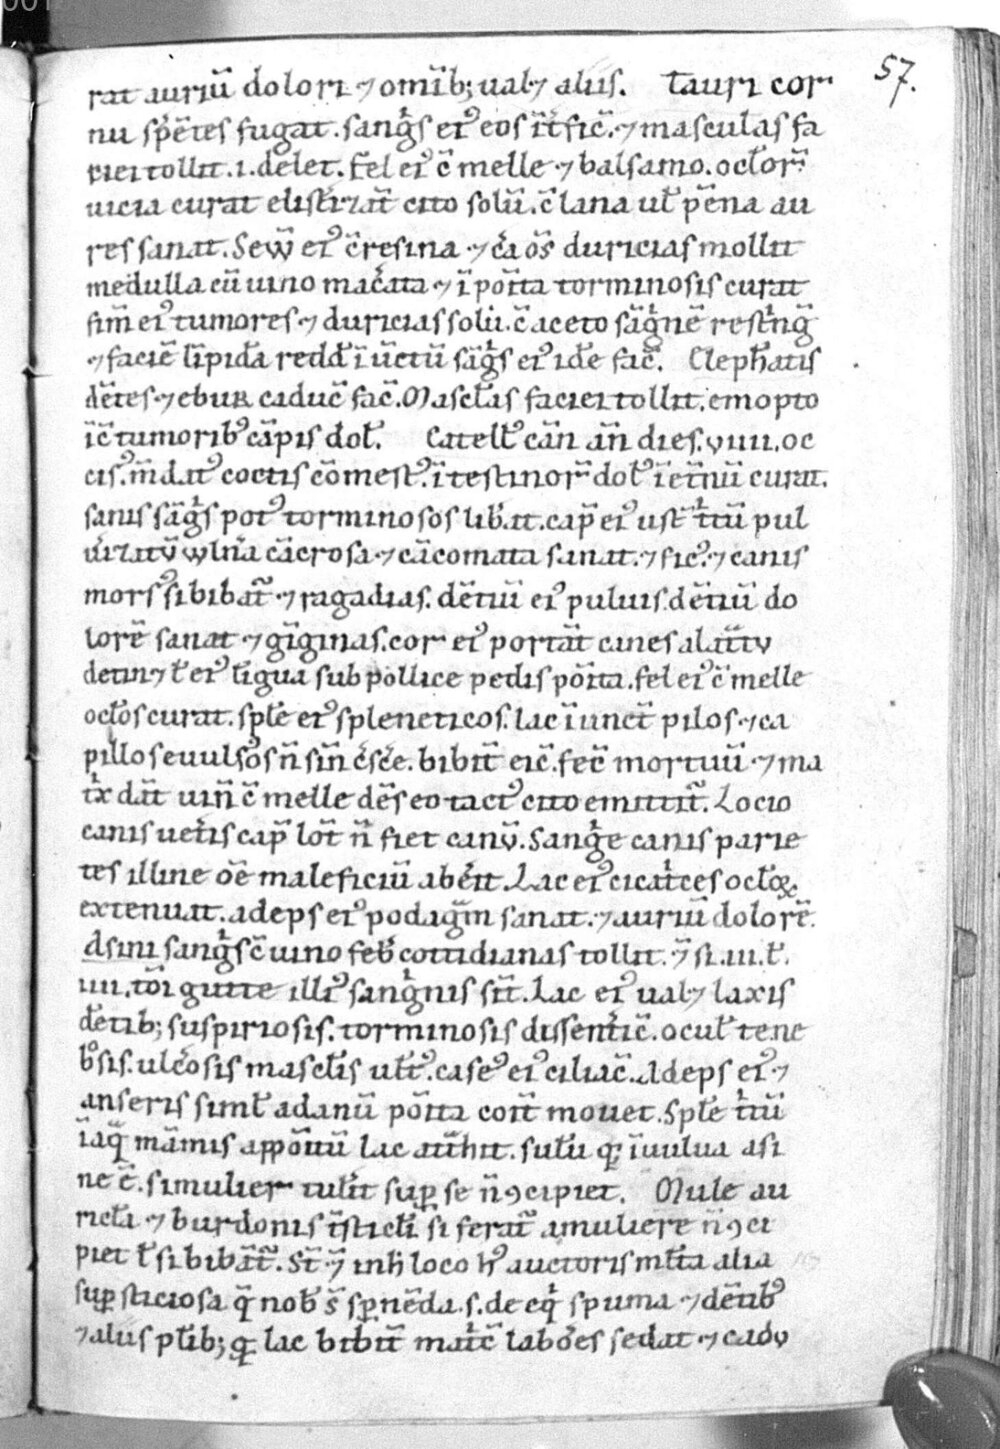 57.
rat auriũ dolori ⁊ omĩb; ual⁊ aliis. Tauri cor
nu spẽtes fugat. sangͥs eiꝰ eos ĩt̃fic̃. ⁊ masculas fa
ciei tollit .i. delet. fel eiꝰ c̃ melle ⁊ balsamo. oclor̃
uicia curat cito solũ. c̃ lana ul̃ pẽna au
res sanat. Sew̃ eiꝰ c̃ resina ⁊ duricias mollit
medulla cũ uino mac̃ata ⁊ ĩ poĩta torminosis curat
fim̃ eiꝰ tumores ⁊ duricias solũ. c̃ aceto sãgͥnẽ restͥng̃
⁊ faciẽ lĩpida redd̃ ĩ ũctũ sãgͥs eiꝰ idẽ fac̃. Elephãtis
dẽtes ⁊ ebur caduc̃ fac̃. Mascl̃as faciei tollit. emopto
ĩc̃ tumoribꝰ cãpis dol̃. Catell̃ cãn añ dies .viiii. oc
cisꝰ. m̃datꝰ coctis cõmestꝰ. ĩtestinor̃ dol̃ curat.
sanis sãgͥs potꝰ torminosos lib̃it. cap̃ eiꝰ ust̃ tͥtũ pul
uͥizatũ wlña cãcrosa ⁊ cãcomata sanat. ⁊ ficꝰ. ⁊ canis
morsꝰ si bibat̃ ⁊ ragadias. dẽtiũ eiꝰ puluis. dẽtiũ do
lorẽ sanat ⁊ gĩginas. cor eiꝰ portãt canes
detin⁊ l̃ eiꝰ lĩgua sub pollice pedis poĩta. fel eiꝰ c̃ melle
ocl̃os curat. splẽ eiꝰ spleneticos. lac ĩunct̃ pilos ⁊ ca
pillos euulsos ñ sin̄ c̃sc̃e. bibit̃ eic̃. fec̃ mortuũ ⁊ ma
tͥx dãt uiñ c̃ melle dẽs eo tactꝰ cito emittit̃. Locio
canis uet̃is cap̃ lot̃ ñ fiet canũ. Sangͥe canis parie
tes illine oẽ maleficiũ abẽit. Lac eiꝰ cicatͥces ocl̃oꝝ
extenuat. adeps eiꝰ podagͣm sanat. ⁊ auriũ dolorẽ.
Asini sangͥs c̃ uino feb̃ cottidianas tollit. ⁊̃ si .iii. l̃.
iiii. toĩ gutte illiꝰ sangͥnis sĩt. Lac eiꝰ ual⁊ laxis
dẽtib; suspiriosis. torminosis dissentͥic̃. ocul̃ tene
bͦsis. ulc̃osis mascl̃is utl̃ꝰ. caseꝰ eiꝰ ciliac̃. Adeps eiꝰ ⁊
anseris siml̃ ad anũ poĩta coit̃ mouet. Splẽ tͥtũ
ĩ aq̃ mãmis appoĩtũ lac att̃hit. ĩ uulua asi
ne ẽ. si mulier tul̃it sup̱ se ñ ꝯcipiet. Mule au
ricl̃a ⁊ burdonis ĩsticl̃i si ferat̃ a muliere ñ ꝯci
piet l̃ si bibãt̃. St̃ ⁊̃ in h̃ loco hꝰ auctoris ml̃ta alia
sup̱sticiosa q̃ nob̃ s̃ sp̱nẽda .s. de eqͥ spuma ⁊ dẽtibꝰ
⁊ aliis pl̃ib; qͣ lac bibit̃ matͥc̃ labões sedat ⁊ cadu